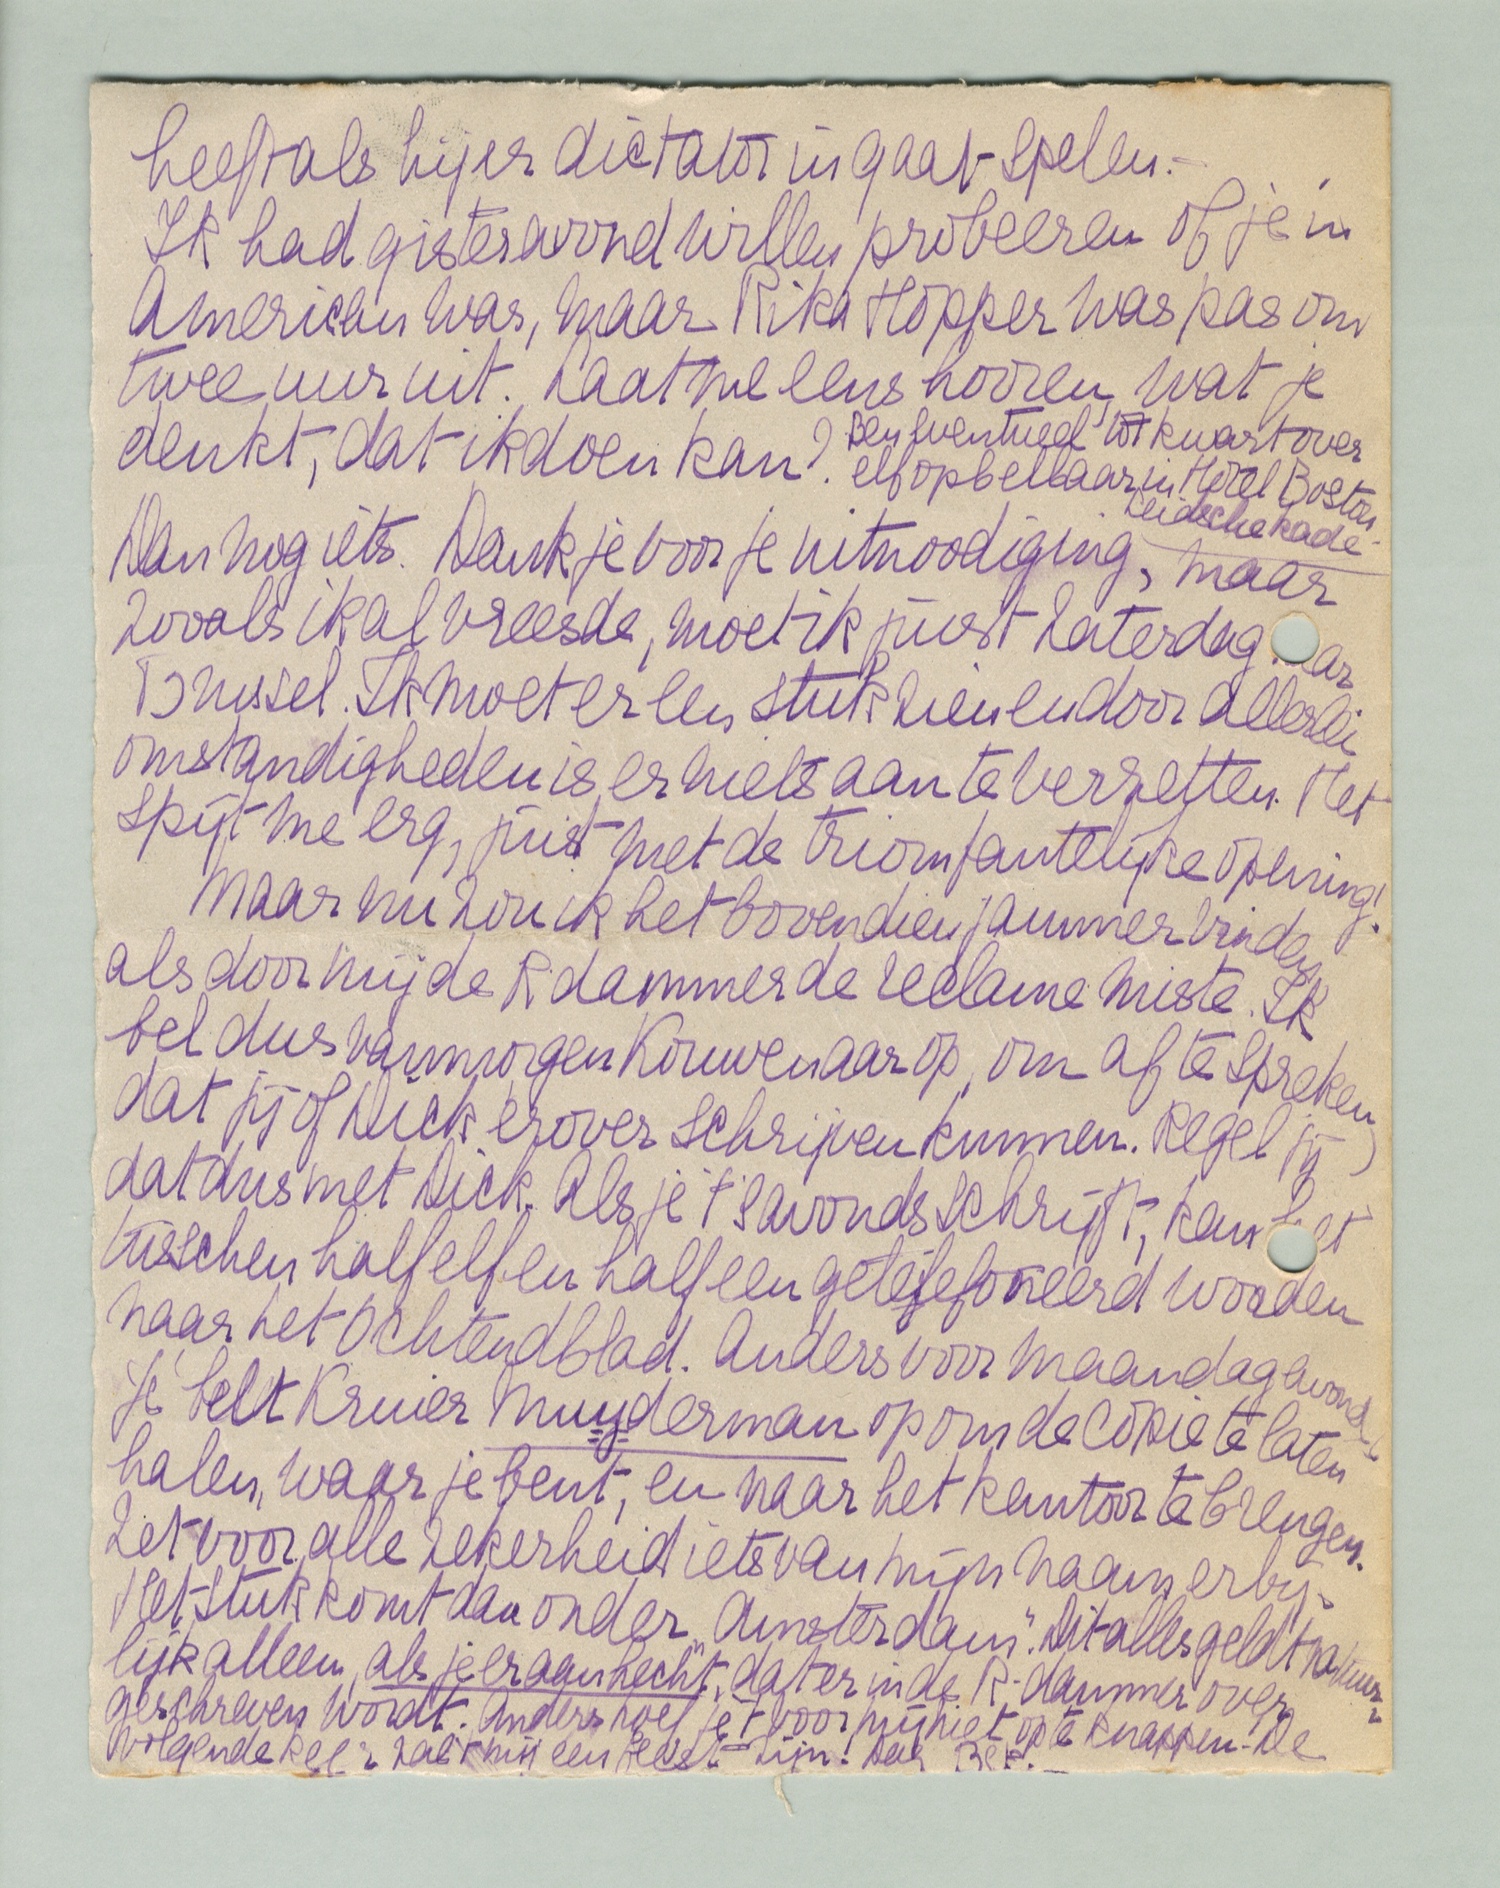 heeft als hij er dictator in gaat spelen.-
Ik had gisteravond willen probeeren of je in
American was, maar Rika Hopper was pas om
twee uur uit. Laat me eens hooren, wat je
denkt, dat ik doen kan? Ben eventueel tot kwart over
elf opbelbaar in Hotel Boston
Leidschekade.
Dan nog iets. Dank je voor je uitnoodiging, maar
zooals ik al vreesde, moet ik juist Zaterdag naar
Brussel. Ik moet er een stuk zien en door allerlei
omstandigheden is er niets aan te verzetten. Het
spijt me erg, juist met de triomfantelijke opening!
Maar nu zou ik het bovendien jammer vinden
als door mij de R'dammer de reclame miste. Ik
bel dus vanmorgen Kouwenaar op, om af te spreken
dat jij of Dick erover schrijven kunnen. Regel jij
dat dus met Dick. Als je 't 's avonds schrijft, kan het
tusschen half elf en half een getelefoneerd worden
naar het Ochtendblad. Anders voor Maandagavond.
Je belt Kruier Muyderman op om de copie te laten
halen, waar je bent, en naar het kantoor te brengen.
Zet voor alle zekerheid iets van mijn naam erbij.
Het stuk komt dan onder "Amsterdam". Dit alles geldt natuur-
lijk alleen, als je eraan hecht, dat er in de R-dammer over
geschreven wordt. Anders hoef je 't voor mij niet op te knappen. De
volgende keer zal ik bij een feest zijn! Dag Bep.